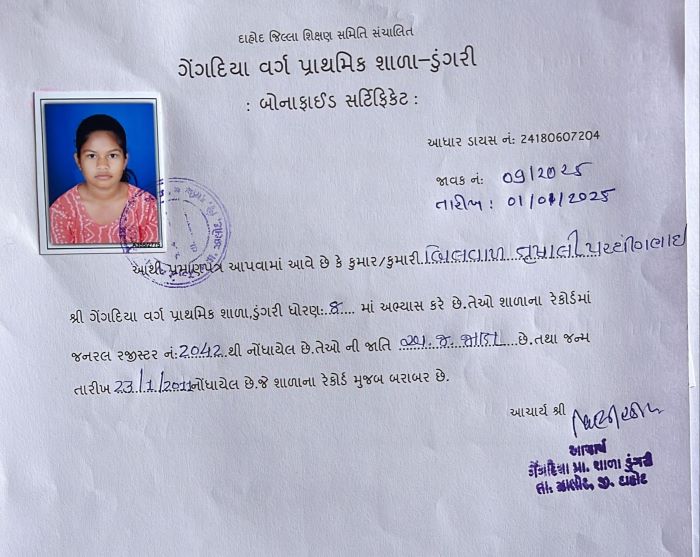 દાહોદ જિલ્લા શિક્ષણ સમિતિ સંચાલિત
ગેંગદિયા વર્ગ પ્રાથમિક શાળા-ડુંગરી
: બોનાફાઈડ સર્ટિફિકેટ :
આધાર ડાયસ નં: 24180607204
જાવક નં: 09/2025
તારીખ : 01/01/2025
આથી પ્રમાણપત્ર આપવામાં આવે છે કે કુમાર/કુમારી
શ્રી ગેંગદિયા વર્ગ પ્રાથમિક શાળા,ડુંગરી ધોરણ:.8.... માં અભ્યાસ કરે છે.તેઓ શાળાના રેકોર્ડમાં
જનરલ રજીસ્ટર નં:2042.થી નોંધાયેલ છે.તેઓ ની જાતિ ...છે.તથા જન્મ
તારીખ 23/1/2011નોંધાયેલ છે.જે શાળાના રેકોર્ડ મુજબ બરાબર છે.
આચાર્ય શ્રી
આચાર્ય
ગેંગદિયા પ્રા. શાળા ડુંગરી
તા. ઝાલોદ, જી. દાહોદ